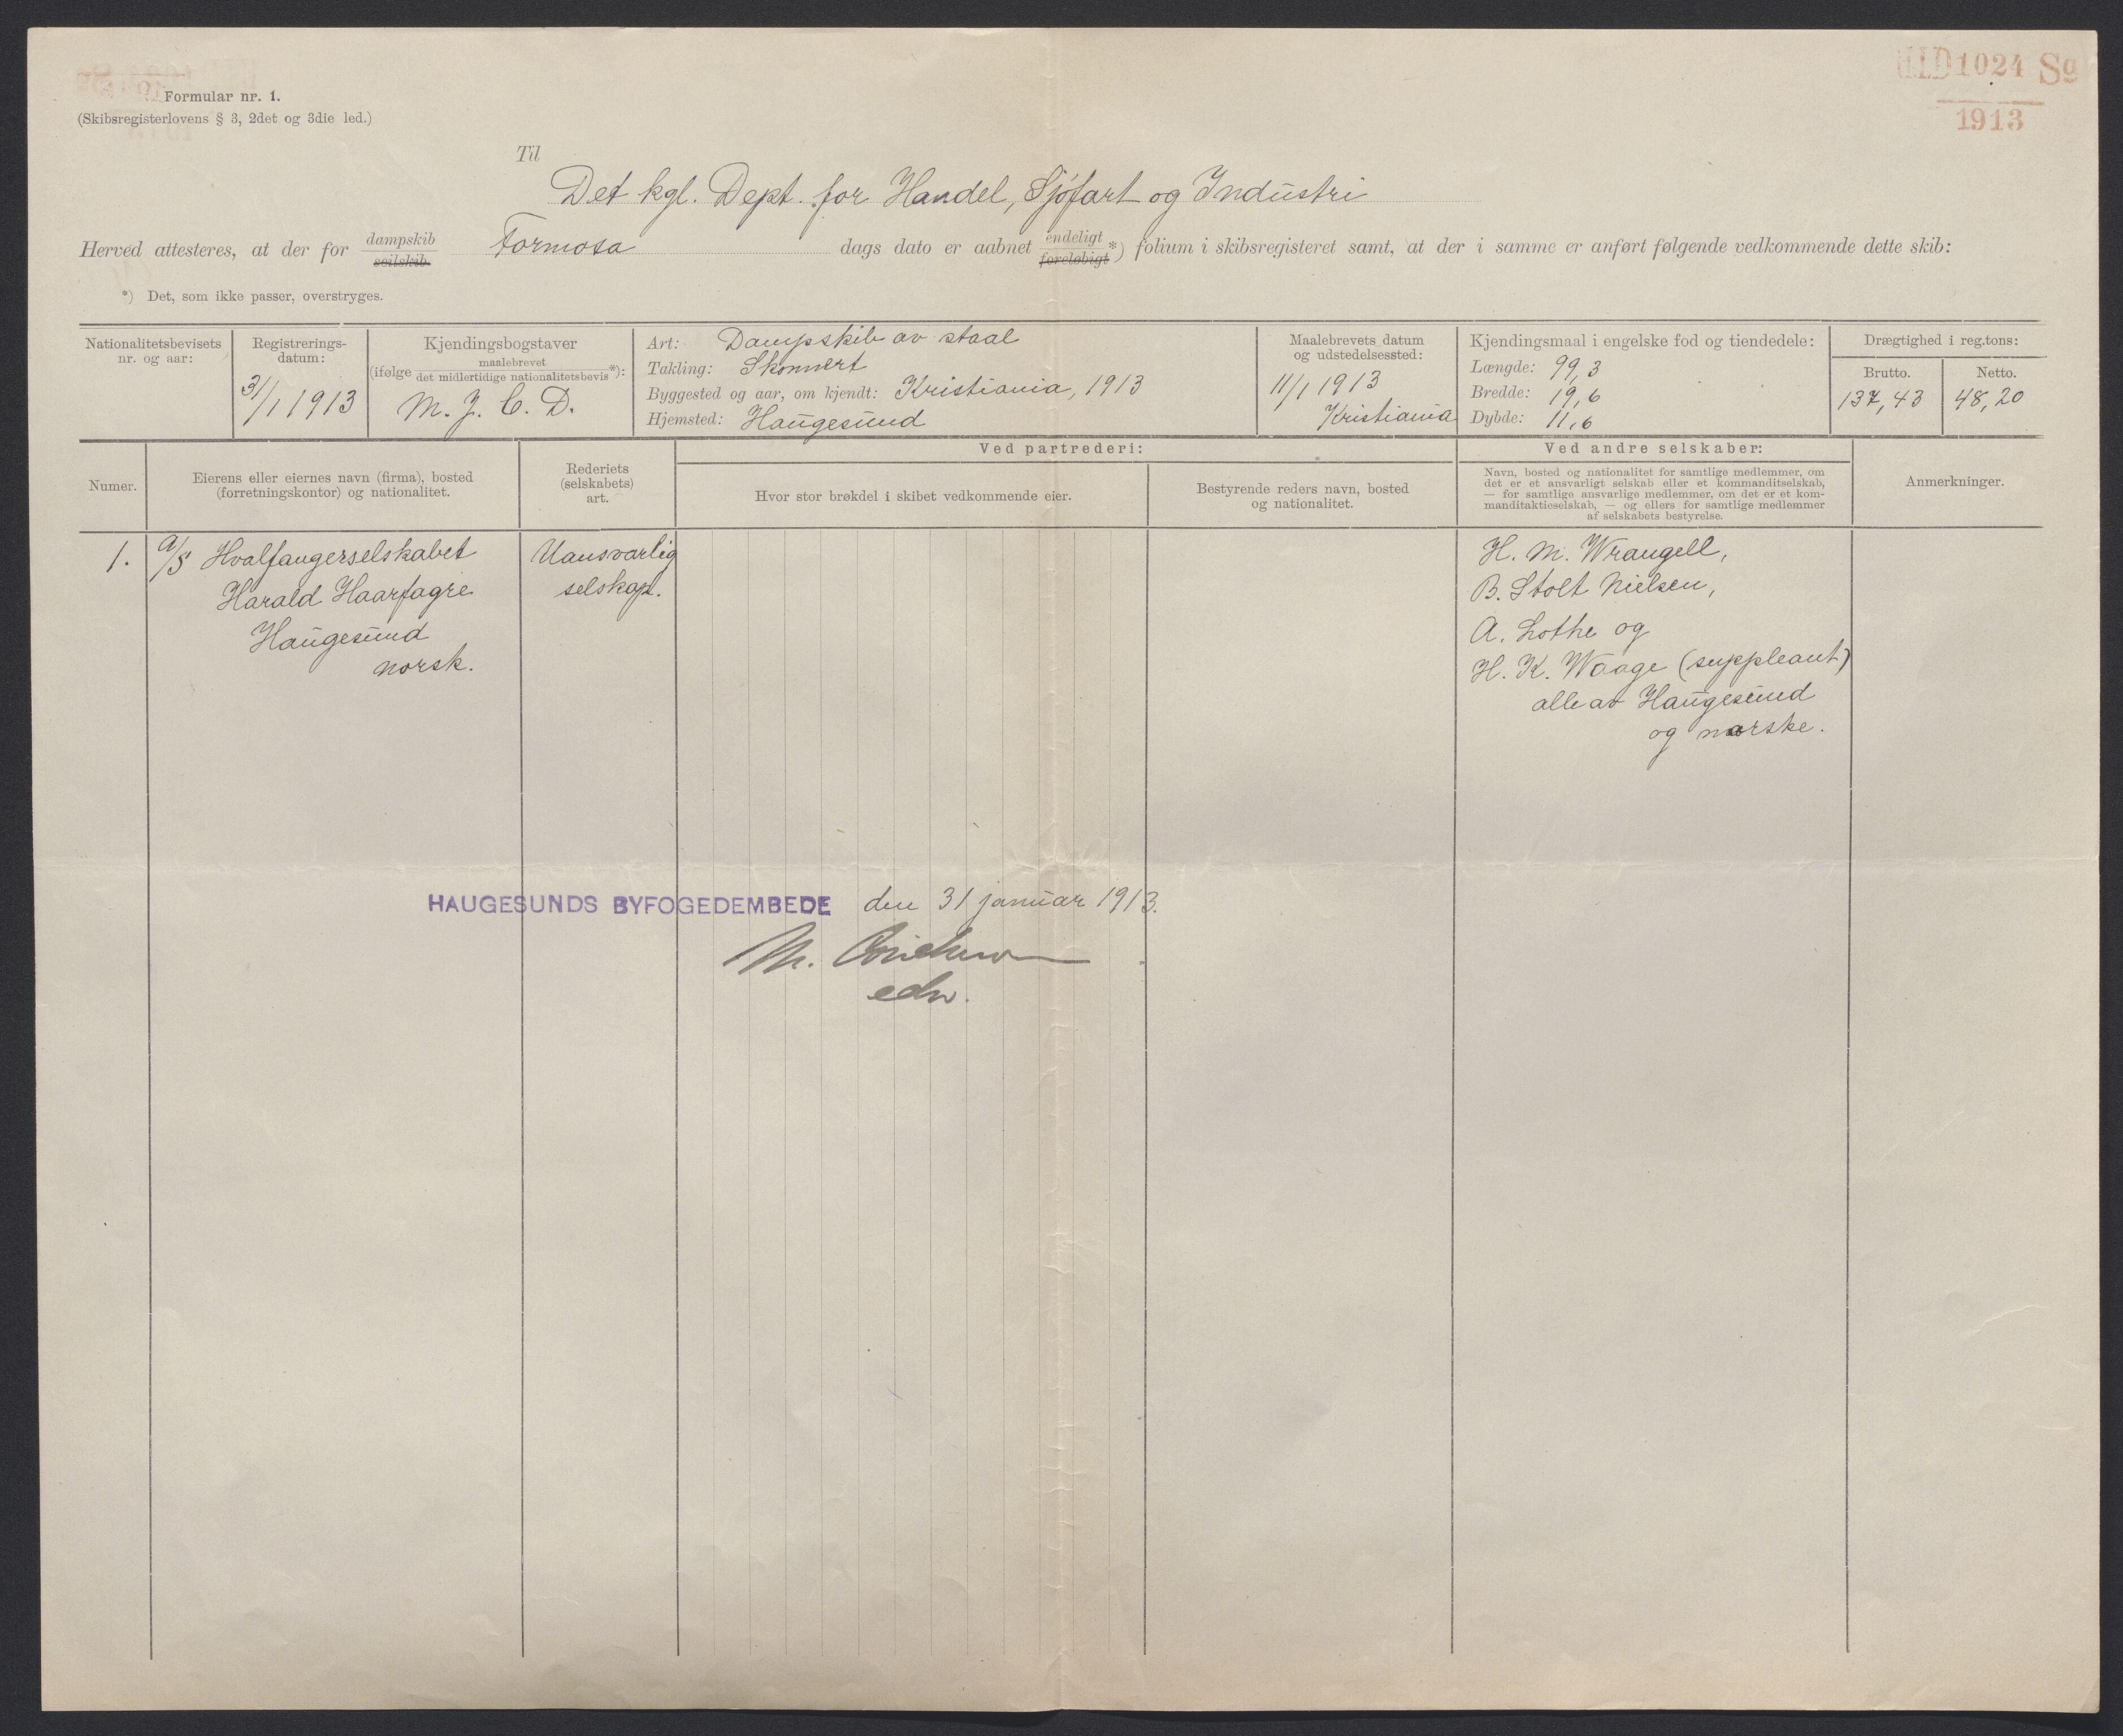 H.I.D 1024 Sø
1913
Formular nr. 1.
(Skibsregisterlovens § 3, 2det og 3die led.)
Til
Det kgl. Dept. for Handel, Sjøfart og Industri
Herved attesteres, at der for dampskib seilskib Formosa dags dato er aabnet endeligt foreløbigt *) folium i skibsregisteret samt, at der i samme er anført følgende vedkommende dette skib:
*) Det, som ikke passer, overstryges.
Nationalitetsbevisets
nr. og aar:
Registrerings-
datum:
31/1 1913
Kjendingsbogstaver
(ifølge maalebrevet det midlertidige nationalitetsbevis *):
M. J. C. D.
Art: Dampskib av staal
Takling: Skonnert
Byggested og aar, om kjendt: Kristiania, 1913
Hjemsted: Haugesund
Maalebrevets datum
og udstedelsessted:
11/1 1913
Kristiania
Kjendingsmaal i engelske fod og tiendedele:
Længde: 99,3
Bredde: 19,6
Dybde: 11,6
Drægtighed i reg.tons:
Brutto.
137,43
Netto.
48,20
Numer.
Eierens eller eiernes navn (firma), bosted
(forretningskontor) og nationalitet.
Rederiets
(selskabets)
art.
Ved partrederi:
Hvor stor brøkdel i skibet vedkommende eier.
Bestyrende reders navn, bosted
og nationalitet.
Ved andre selskaber:
Navn, bosted og nationalitet for samtlige medlemmer, om
det er et ansvarligt selskab eller et kommanditselskab,
— for samtlige ansvarlige medlemmer, om det er et kom-
manditaktieselskab, — og ellers for samtlige medlemmer
af selskabets bestyrelse.
Anmerkninger.
1.
A/S Hvalfangerselskabet
Harald Haarfagre
Haugesund
norsk.
Uansvarlig
selskap.
H. M. Wrangell,
B. Stolt Nielsen,
A. Lothe og
H. K. Waage (suppleant)
alle av Haugesund
og norske.
HAUGESUNDS BYFOGEDEMBEDE den 31 januar 1913.
M.